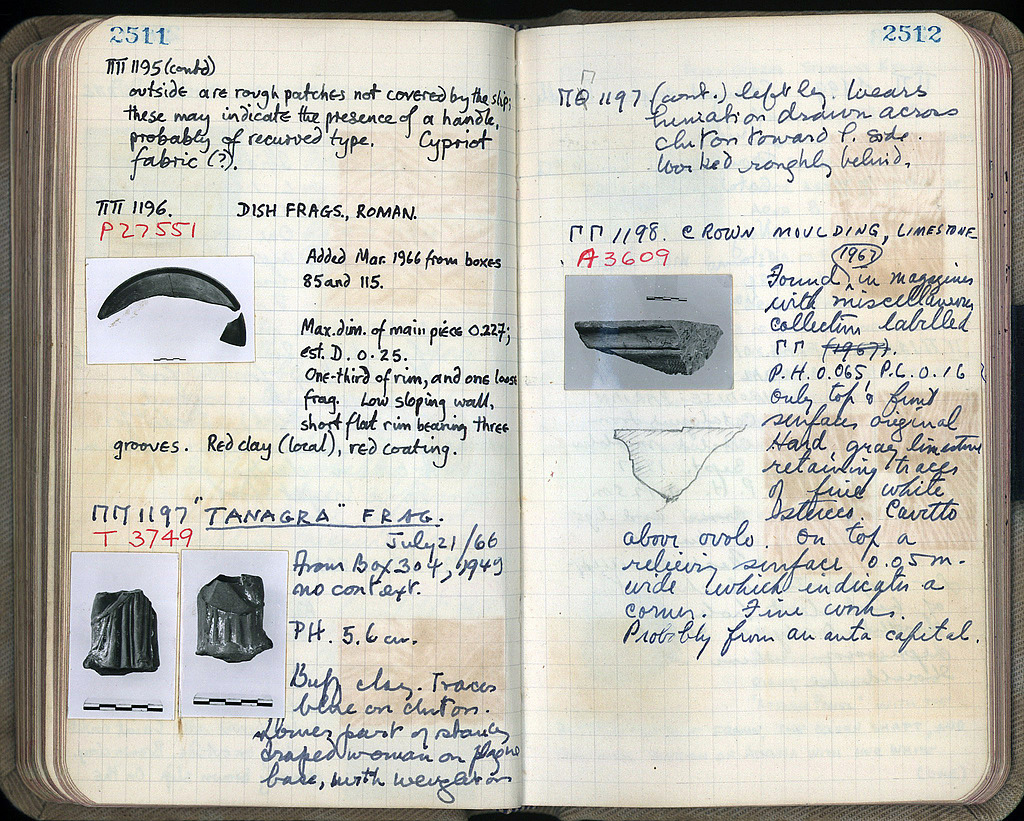 2511
ΠΠ 1195 (contd)
outside are rough patches not covered by the slip;
these may indicate the presence of a handle,
probably of recurved type. Cypriot
fabric (?).
ΠΠ 1196. DISH FRAGS., ROMAN.
P 27551
Added Mar. 1966 from boxes
85 and 115.
Max. dim. of main piece 0.227;
est. D. 0.25.
One-third of rim, and one loose
frag. Low sloping wall,
short flat rim bearing three
grooves. Red clay (local), red coating.
ΠΠ 1197 "TANAGRA" FRAG.
T 3749
July 21/66
From Box 304, 1949
no context.
PH. 5.6 cm.
Buff clay. Traces
blue on chiton.
Lower part of standing
draped woman on plaque
base, with weight on
2512
1197 (cont.) left leg. Wears
himation drawn across
chiton toward P. side.
Worked roughly behind.
ΠΠ 1198. CROWN MOULDING, LIMESTONE
A 3609
1967
Found in magazines
with miscellaneous
collection labelled
ΠΠ (1967).
P.H. 0.065 P.L. 0.16
Only top & front
surfaces original
Hard, gray limestone
retaining traces
of fine white
stucco. Cavetto
above ovolo. On top a
relieving surface 0.05 m.
wide which indicates a
corner. Fine work.
Probably from an anta capital.